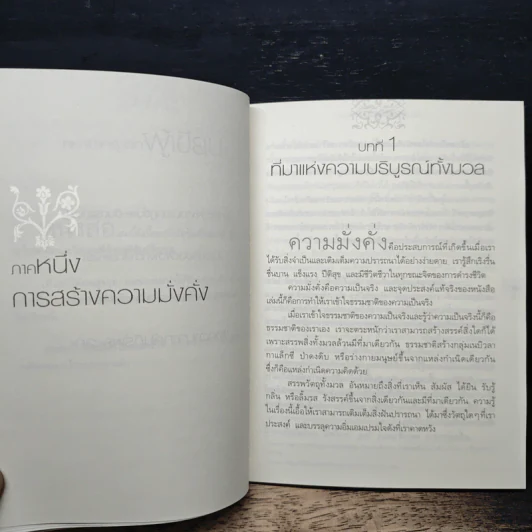 ภาคหนึ่ง
การสร้างความมั่งคั่ง
บทที่ 1
ที่มาแห่งความบริบูรณ์ทั้งมวล
ความมั่งคั่งคือประสบการณ์ที่เกิดขึ้นเมื่อเรา
ได้รับสิ่งจำเป็นและเติมเต็มความปรารถนาได้อย่างง่ายดาย เรารู้สึกเริงรื่น
ชื่นบาน แข็งแรง ปีติสุข และมีชีวิตชีวาในทุกขณะจิตของการดำรงชีวิต
ความมั่งคั่งคือความเป็นจริง และจุดประสงค์แท้จริงของหนังสือ
เล่มนี้ก็คือการทำให้เราเข้าใจธรรมชาติของความเป็นจริง
เมื่อเราเข้าใจธรรมชาติของความเป็นจริงและรู้ว่าความเป็นจริงนี้ก็คือ
ธรรมชาติของเราเอง เราจะตระหนักว่าเราสามารถสร้างสรรค์สิ่งใดก็ได้
เพราะสรรพสิ่งทั้งมวลล้วนมีที่มาเดียวกัน ธรรมชาติสร้างกลุ่มเนบิวลา
กาแล็กซี ป่าดงดิบ หรือร่างกายมนุษย์ขึ้นจากแหล่งกำเนิดเดียวกัน
ซึ่งก็คือแหล่งกำเนิดความคิดด้วย
สรรพวัตถุทั้งมวล อันหมายถึงสิ่งที่เราเห็น สัมผัส ได้ยิน รับรู้
กลิ่น หรือลิ้มรส รังสรรค์ขึ้นจากสิ่งเดียวกันและมีที่มาเดียวกัน ความรู้
ในเรื่องนี้เอื้อให้เราสามารถเติมเต็มสิ่งฝันปรารถนา ได้มาซึ่งวัตถุใดๆ ที่เรา
ประสงค์ และบรรลุความอิ่มเอมเปรมใจดังที่เราคาดหวัง